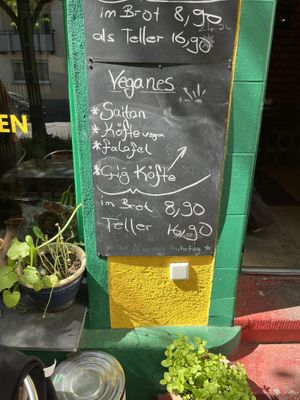 im Brot 8,90
als Teller 16,90
Veganes
* Saitan
* Köfte vegan
* falafel
* Çiğ Köfte
im Brot 8,90
Teller 16,90
EN